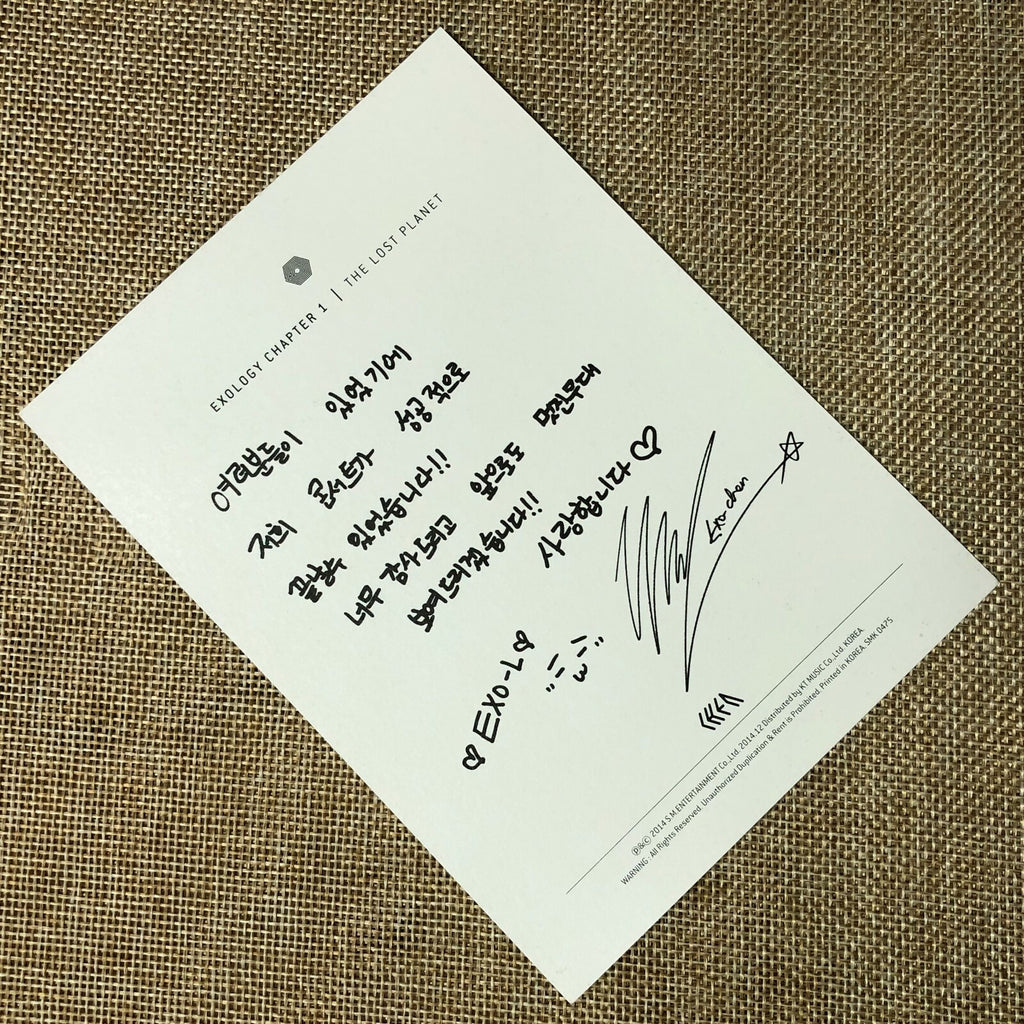 EXOLOGY CHAPTER 1 | THE LOST PLANET
여러분들이 있었기에
저희 콘서트가 성공적으로
끝날수 있었습니다!!
너무 감사드리고 앞으로도 멋진무대
보여드리겠습니다!!
사랑합니다♡
♡EXO-L♡
Exo chen
Ⓟ&ⓒ 2014 S.M.ENTERTAINMENT Co.,Ltd. 2014.12 Distributed by KT MUSIC Co.,Ltd. KOREA.
WARNING : All Rights Reserved. Unauthorized Duplication & Rent is Prohibited. Printed in KOREA. SMK 0475